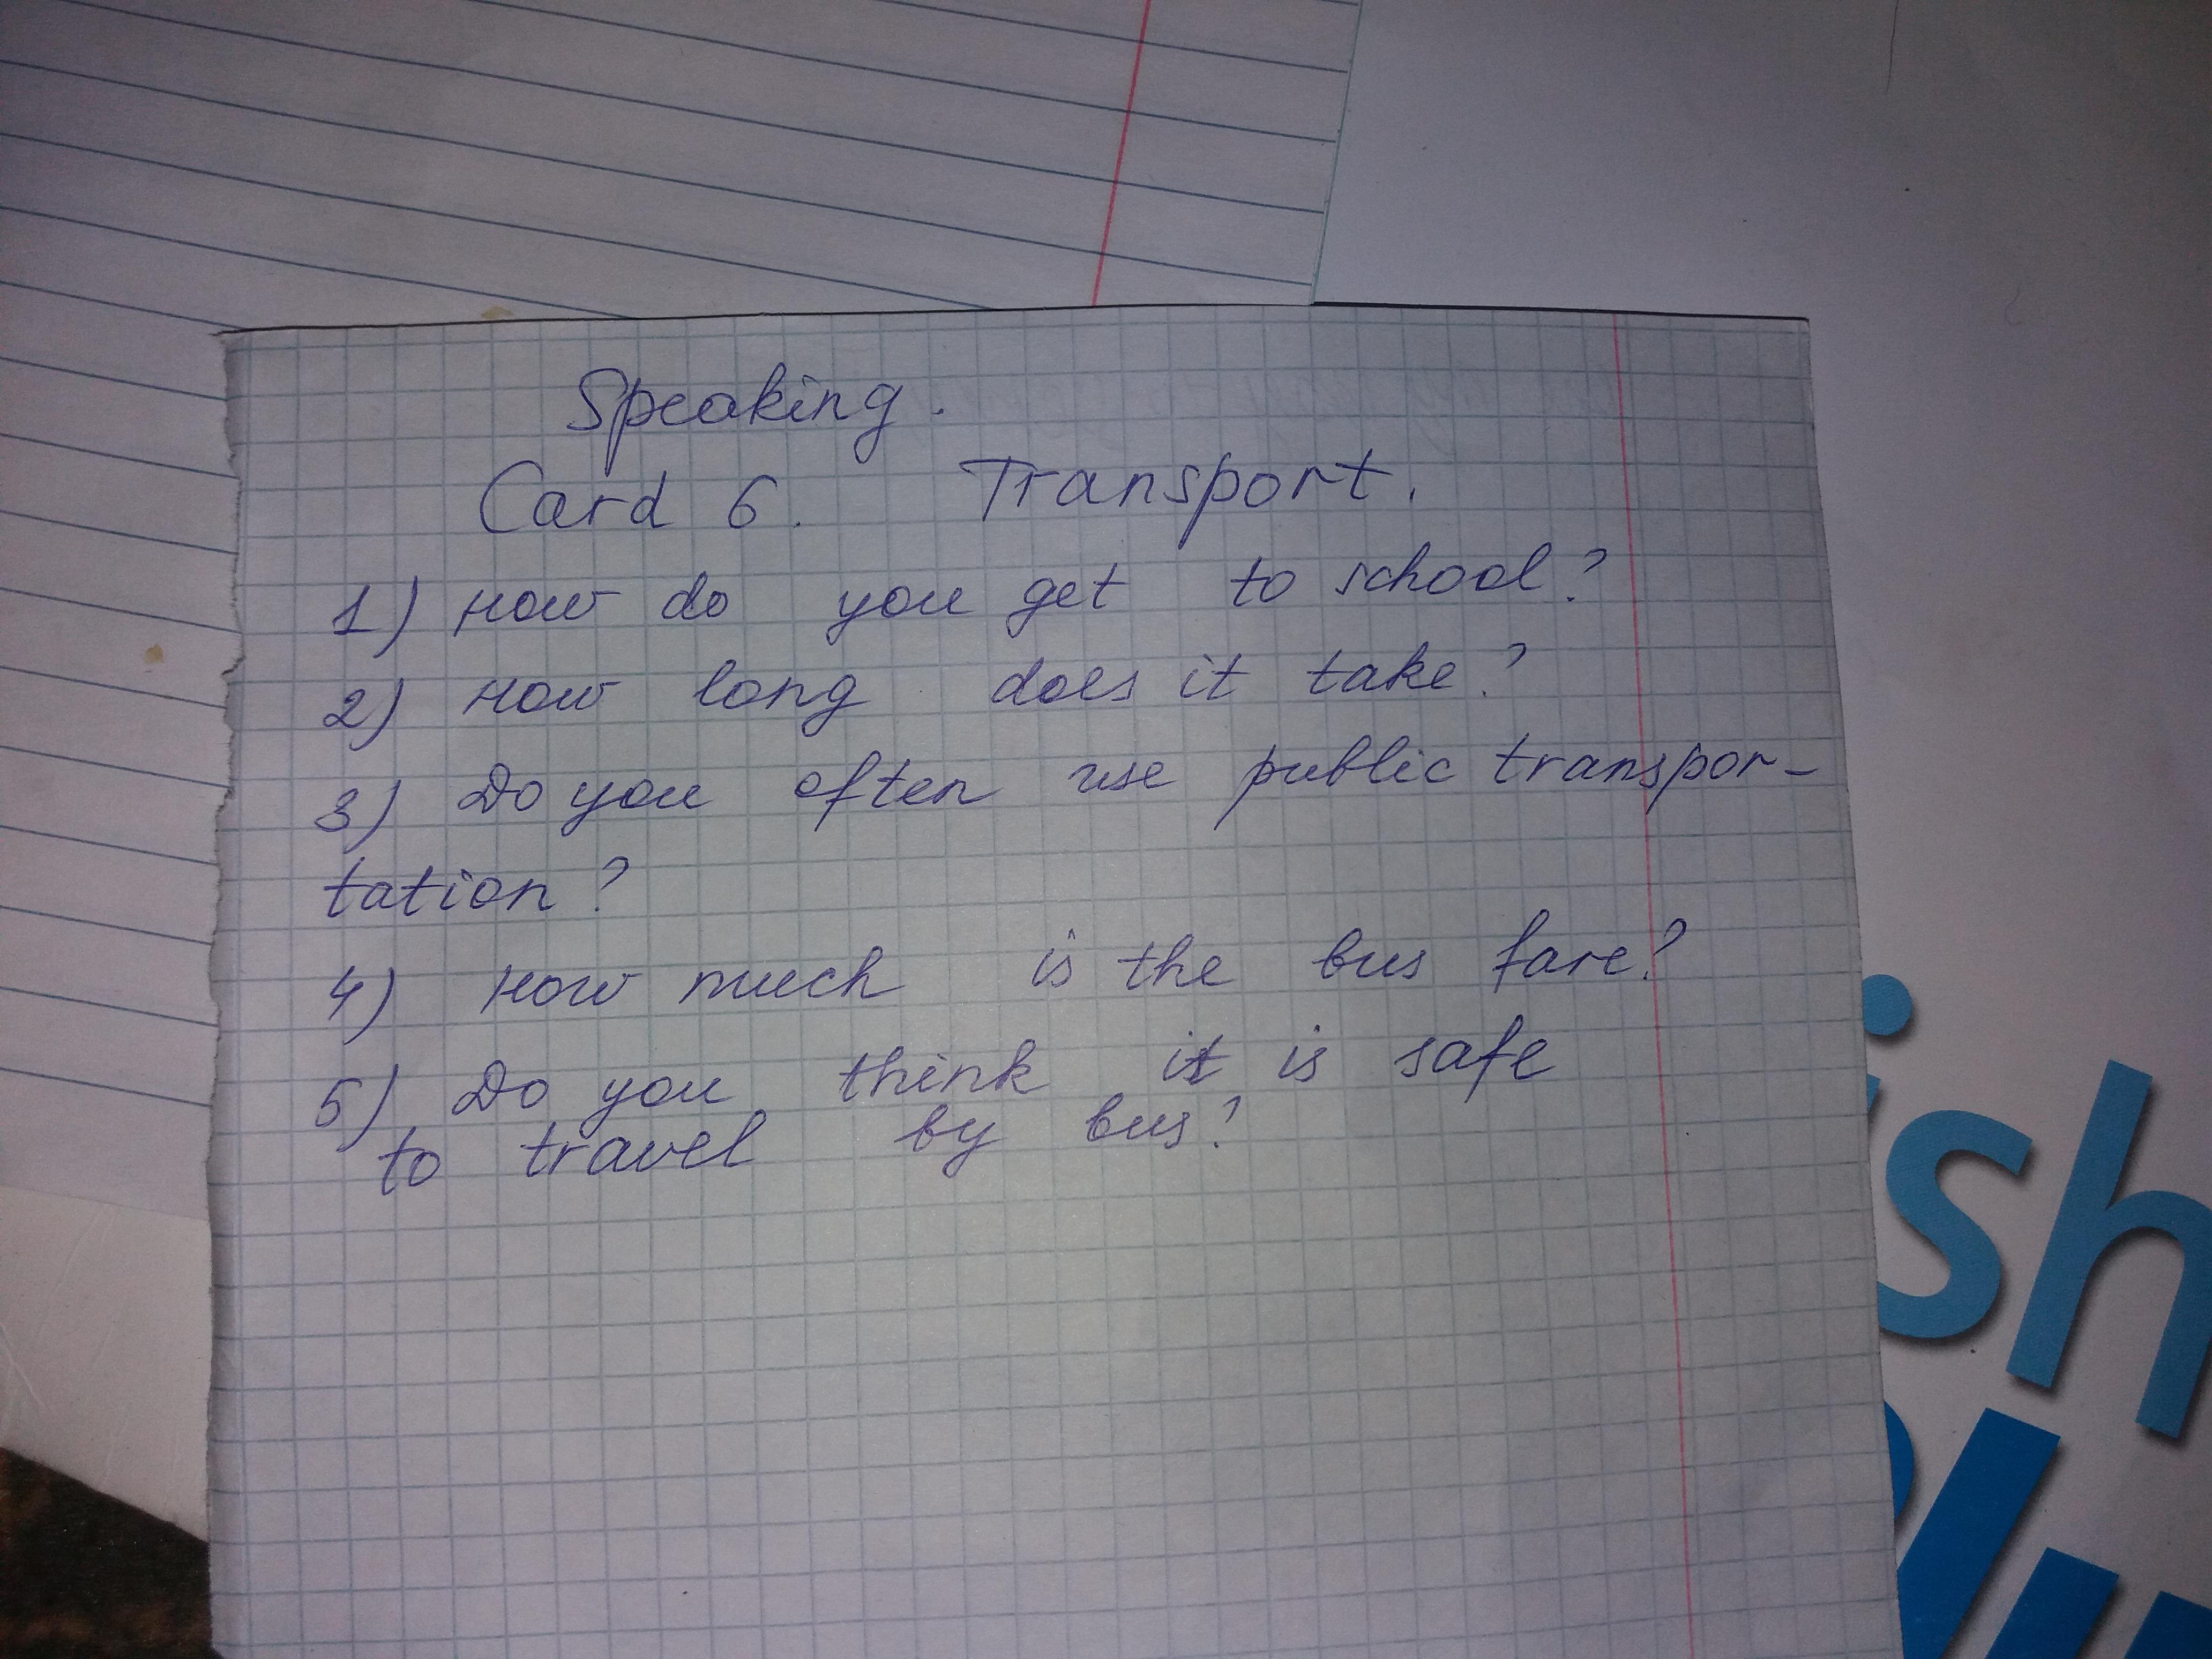 Speaking.
Card 6. Transport.
1) How do you get to school?
2) How long does it take?
3) Do you often use public transpor-
tation?
4) How much is the bus fare?
5) Do you think it is safe
to travel by bus?
ish